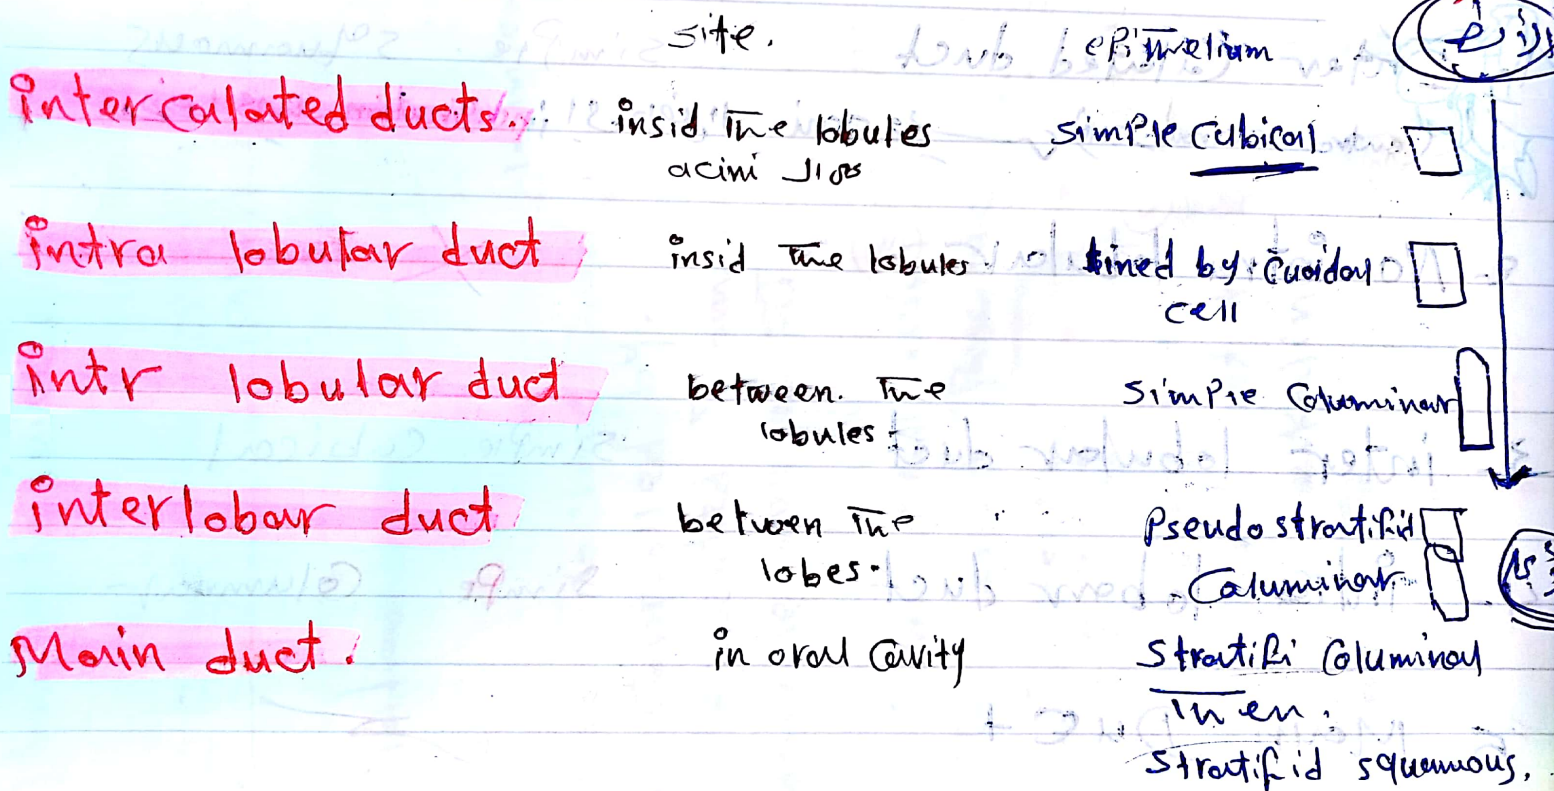 site. epithelium
intercalated ducts. insid The lobules simple cubical
acini
intra lobular duct insid The lobules. lined by cuoidal
cell
intr lobular duct between. The simple Columinar
lobules.
interlobar duct between The Pseudo stratifid
lobes. Columinar
Main duct. in oral Cavity Stratifi Columinal
Then.
Stratifid squamous.